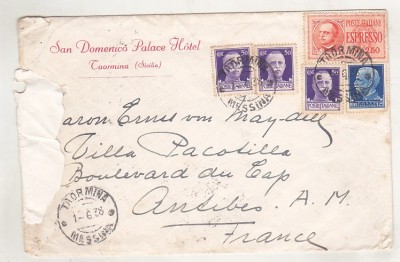 San Domenico Palace Hôtel
Taormina (Sicilia)
POSTE ITALIANE
ESPRESSO
2.50
50
50
POSTE ITALIANE
TAORMINA
MESSINA
Baron Ernst von
Villa Pacotilla
Boulevard du Cap
Antibes, A. M.
France
TAORMINA
1-6 38
MESSINA